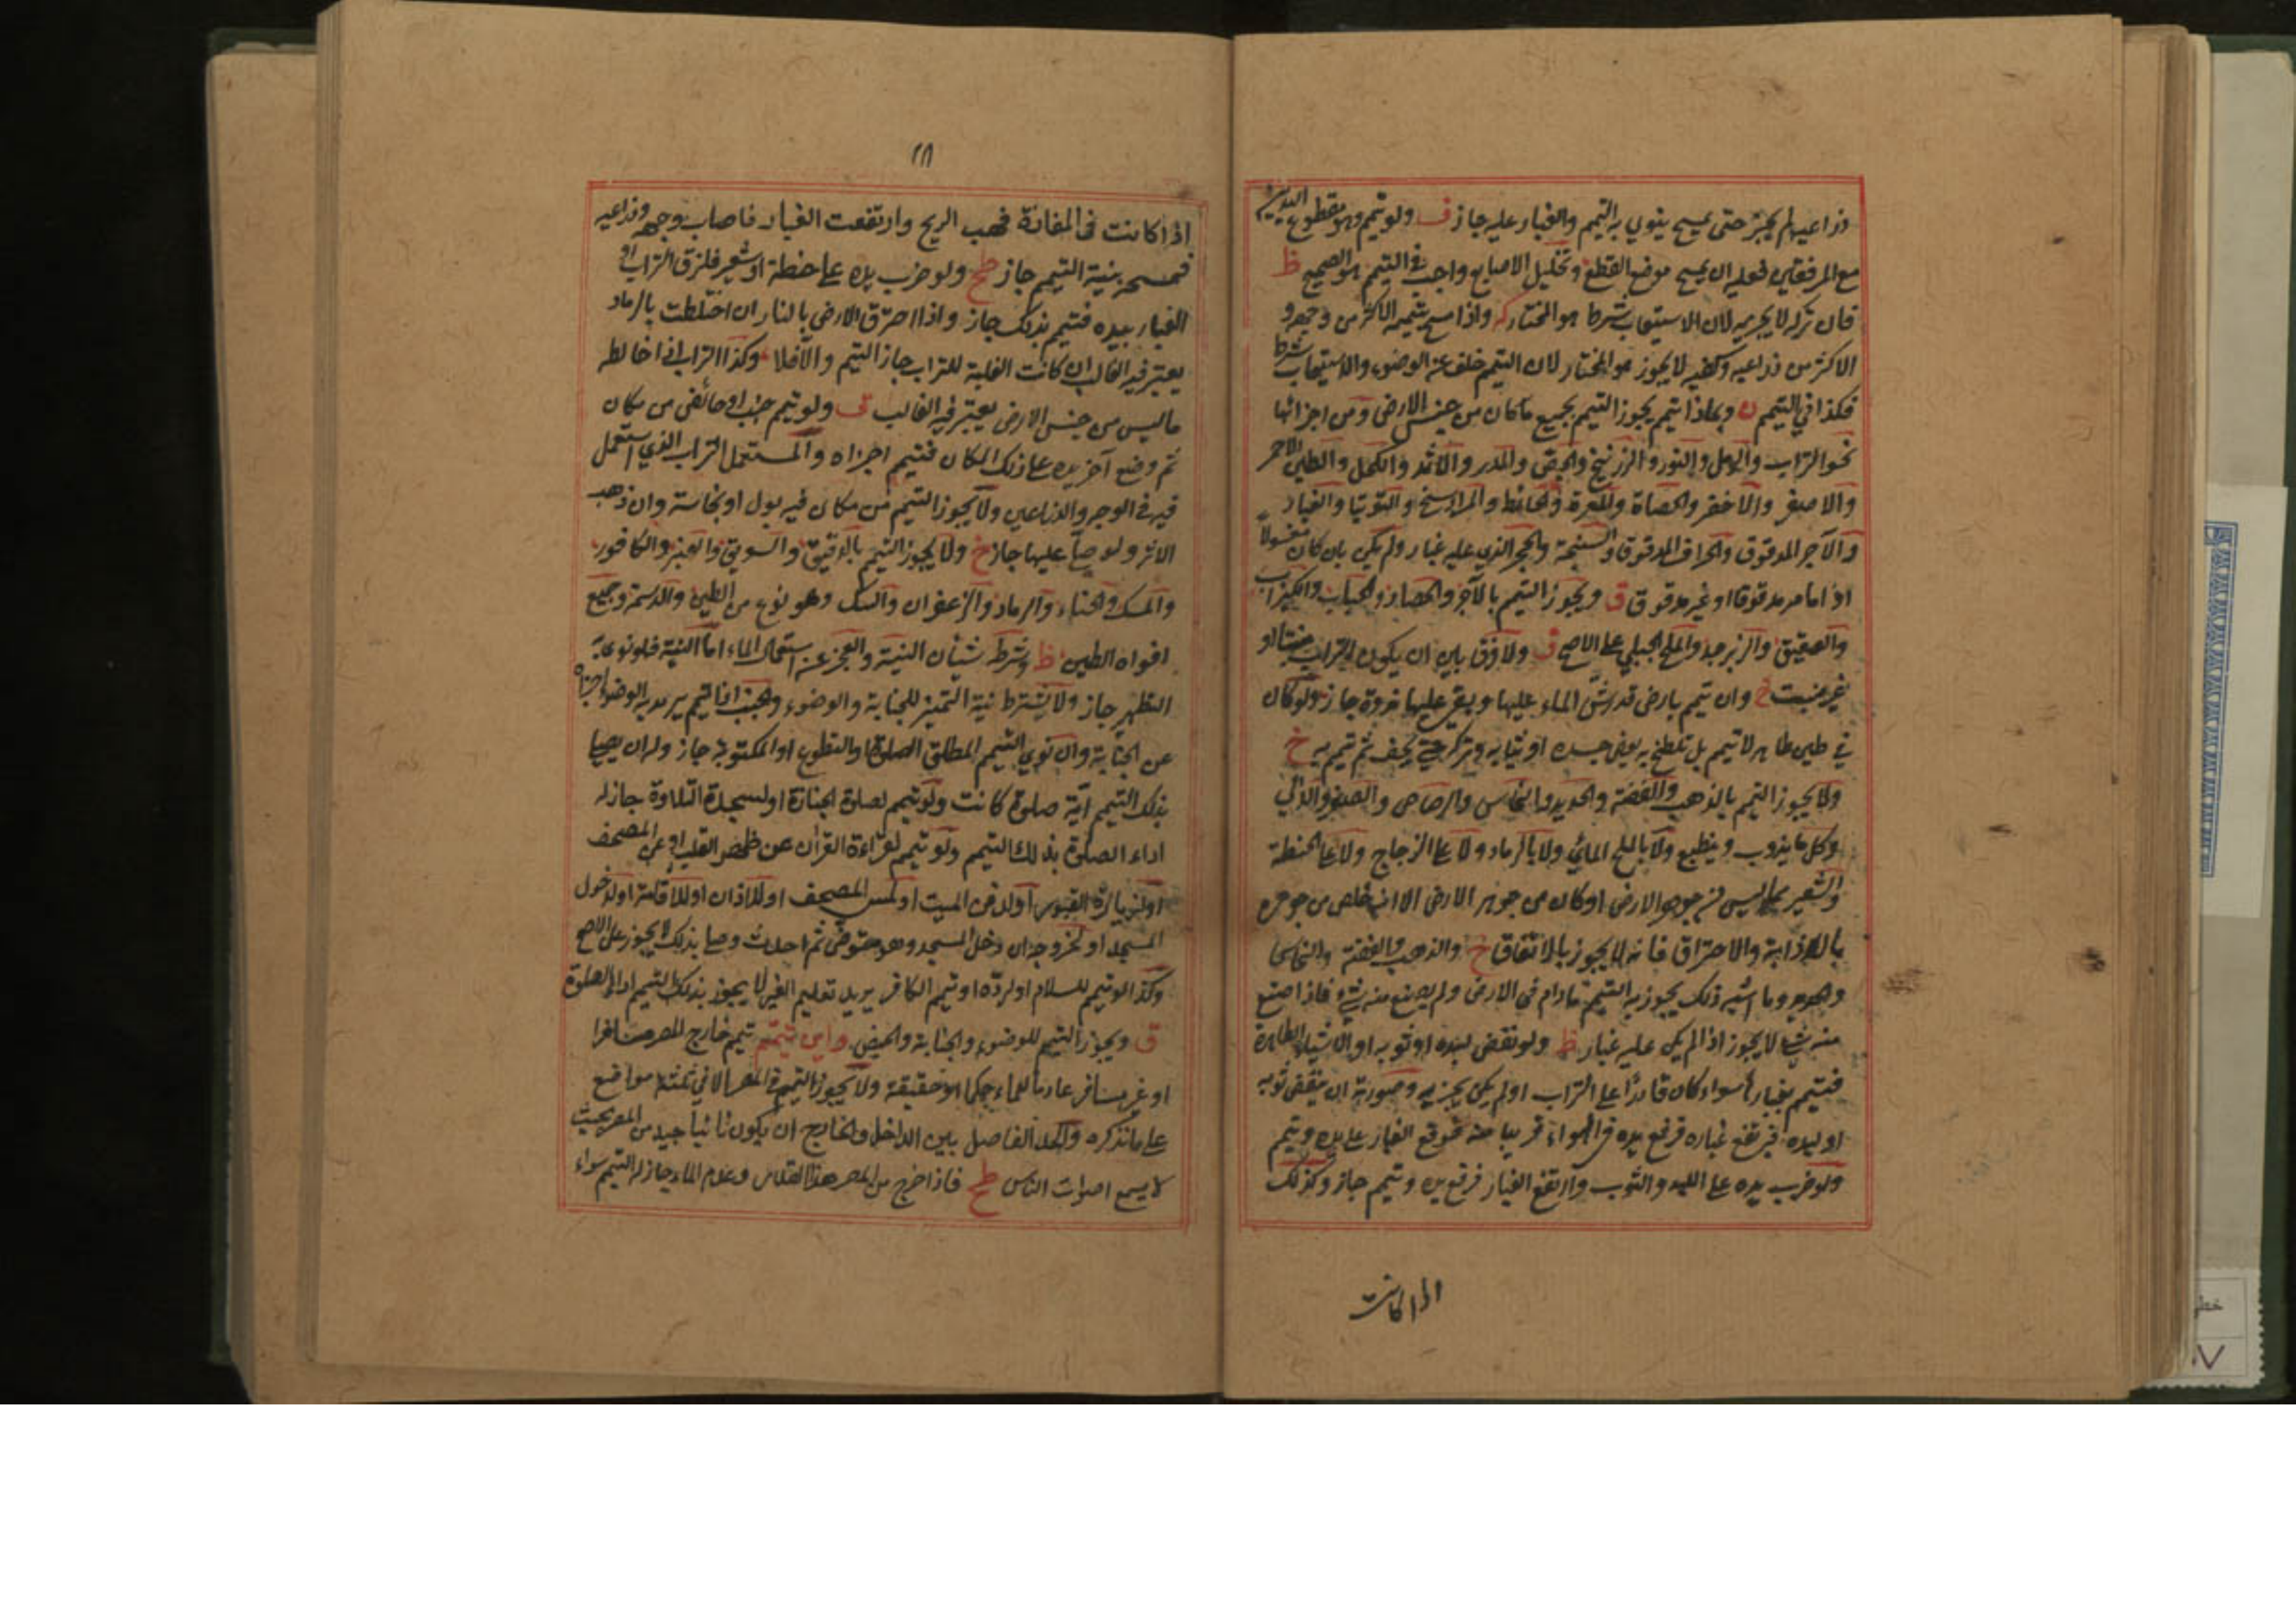 ذراعيه لم يجز حتى يمسح ينوي به التيمم والغبار عليه جاز ف ولو تيمم وهو مقطوع اليدين
مع المرفقين فعليه ان يمسح موضع القطع وتخليل الاصابع واجب في التيمم هو الصحيح ظ
فان تركه لا يجزيه لان الاستيعاب شرط هو المختار واذا مسح تيممه الاكثر من وجهه و
الاكثر من ذراعيه وكفيه لا يجوز هو المختار لان التيمم خلف عن الوضوء والاستيعاب شرط
فكذا في التيمم ن وبماذا يتيمم يجوز التيمم بجميع ما كان من جنس الارض ومن اجزائها
نحو التراب والرمل والنورة والزرنيخ والجص والمدر والاثمد والكحل والطين الاحمر
والاصفر والاخضر والحصاة والمغرة والحائط والمرداسنج والتوتيا والغبار
والآجر المدقوق والخزف المدقوق والسبخة والحجر الذي عليه غبار ولم يكن بان كان مغسولا
او املس مدقوقا او غير مدقوق ق ويجوز التيمم بالآجر والحصا والحباب والكيزان
والعقيق والزبرجد والملح الجبلي على الاصح ف ولا فرق بين ان يكون التراب منبتا او
غير منبت خ وان تيمم بارض قد رش الماء عليها وبقي عليها ندوة جاز ولو كان
في طين طاهر لا تيمم بل تلطخ به بعض جسده او ثيابه ويتركه حتى يجف ثم تيمم به خ
ولا يجوز التيمم بالذهب والفضة والحديد والنحاس والرصاص والصفر واللآلي
وكل ما يذوب وينطبع ولا بالملح المائي ولا بالرماد ولا على الزجاج ولا على الحنطة
والشعير مما ليس من جوهر الارض او كان من جوهر الارض الا انه خلص من جوهره
بالاذابة والاحتراق فانه لا يجوز بالاتفاق خ والذهب والفضة والنحاس
وما اشبه ذلك يجوز به التيمم ما دام في الارض ولم يصنع منه شئ فاذا صنع
منه شئ لا يجوز اذا لم يكن عليه غبار ظ ولو نفض لبده او ثوبه او الاشياء الطاهرة
فتيمم بغبارها سواء كان قادرا على التراب او لم يكن يجزيه وصورته ان ينفض ثوبه
او لبده فيرتفع غباره فرفع يده في الهواء قريبا منه فوقع الغبار على يده وتيمم
ولو ضرب يده على اللبد والثوب وارتفع الغبار فرفع يده وتيمم جاز وكذلك
اذا كانت
٢٨
اذا كانت في المفازة فهب الريح وارتفعت الغبار فاصاب وجهه وذراعيه
فمسحه بنية التيمم جاز طح ولو ضرب يده على حنطة او شعير فلزق التراب او
الغبار بيده فتيمم بذلك جاز واذا احترق الارض بالنار ان اختلطت بالرماد
يعتبر فيه الغالب ان كانت الغلبة للتراب جاز التيمم والا فلا وكذا التراب اذا خالطه
ما ليس من جنس الارض يعتبر فيه الغالب ف ولو تيمم جنب او حائض من مكان
ثم وضع آخر يده على ذلك المكان فتيمم اجزاه والمستعمل التراب الذي استعمل
فيه في الوجه والذراعين ولا يجوز التيمم من مكان فيه بول او نجاسة وان ذهب
الاثر ولو صلى عليها جاز خ ولا يجوز التيمم بالدقيق والسويق والعنبر والكافور
والمسك والحناء والرماد والزعفران والسك وهو نوع من الطين والدسمة وجميع
افواه الطين ظ وشرطه شيأن النية والعجز عن استعمال الماء اما النية فلو نوى به
التطهير جاز ولا يشترط نية التمييز للجنابة والوضوء والجنب اذا تيمم يريد به الوضوء اجزاه
عن الجنابة وان نوى التيمم المطلق الصلوة او التطوع او المكتوبة جاز وله ان يصلي
بذلك التيمم اية صلوة كانت ولو تيمم لصلوة الجنازة او لسجدة التلاوة جاز له
اداء الصلوة بذلك التيمم ولو تيمم لقراءة القرآن عن ظهر القلب او عن المصحف
او لزيارة القبور او لدفن الميت او لمس المصحف او للاذان او للاقامة او لدخول
المسجد او لخروجه ان دخل المسجد وهو متوضئ ثم احدث وصلى بذلك لا يجوز على الاصح
وكذا لو تيمم للسلام او لرده او تيمم الكافر يريد تعليم الغير لا يجوز بذلك التيمم اداء الصلوة
ق ويجوز التيمم للوضوء والجنابة والحيض واين يتيمم تيمم خارج المصر مسافرا
او غير مسافر عادما للماء حكما او حقيقة ولا يجوز التيمم في المصر الا في ثلثة مواضع
على ما نذكره والحد الفاصل بين الداخل والخارج ان يكون نائيا جيد من المصر بحيث
لا يسمع اصوات الناس طح فاذا خرج من المصر هذا القدر وعدم الماء جاز له التيمم سواء